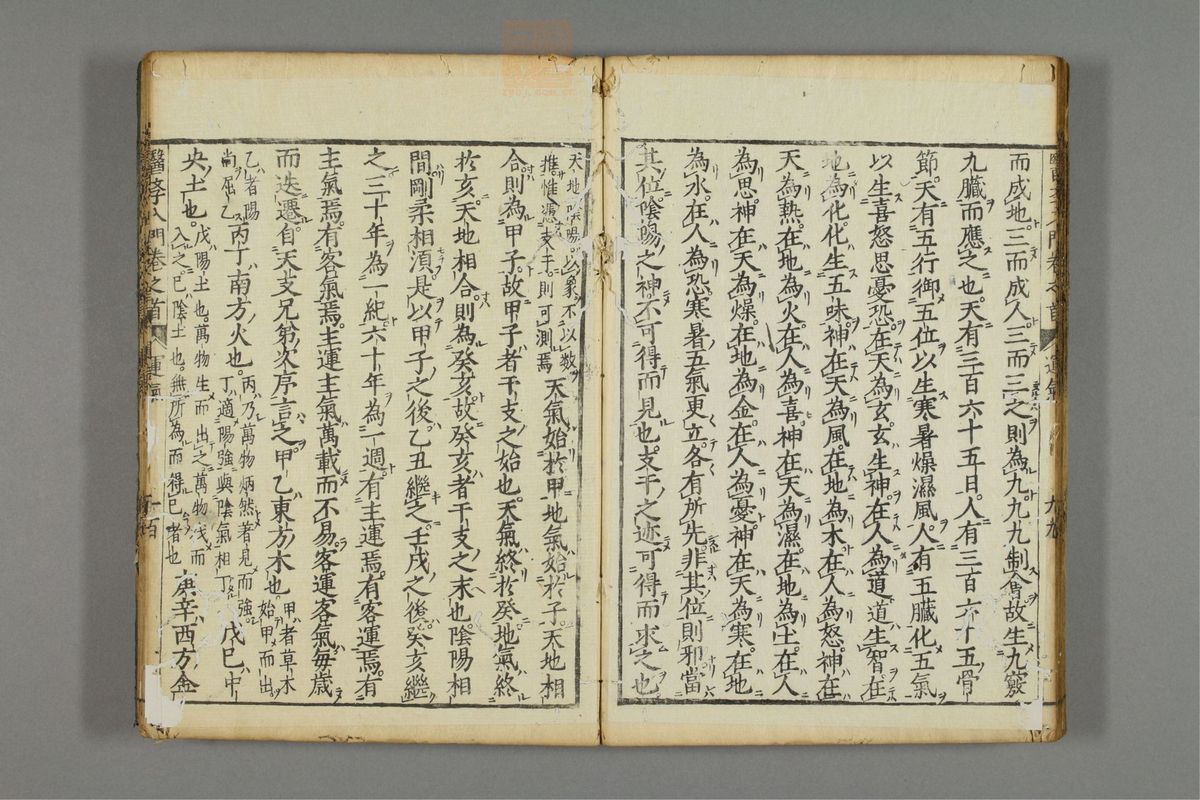 而成地三而成人三而三之則為九九九制會故生九竅
九臟而應之也天有三百六十五日人有三百六十五骨
節天有五行御五位以生寒暑燥濕風人有五臟化五氣
以生喜怒思憂恐在天為玄玄生神在人為道道生智在
地為化化生五味神在天為風在地為木在人為怒神在
天為熱在地為火在人為喜神在天為濕在地為土在人
為思神在天為燥在地為金在人為憂神在天為寒在地
為水在人為恐寒暑五氣更立各有所先非其位則邪當
其位陰陽之神不可得而見也支干之迹可得而求之也
天地陰陽以象不以數
推惟憑支干則可測焉
天氣始於甲地氣始於子天地相
合則為甲子故甲子者干支之始也天氣終於癸地氣終
於亥天地相合則為癸亥故癸亥者干支之末也陰陽相
間剛柔相須是以甲子之後乙丑繼之壬戌之後癸亥繼
之三十年為一紀六十年為一週有主運焉有客運焉有
主氣焉有客氣焉主運主氣萬載而不易客運客氣每歲
而迭遷自天支兄弟次序言之甲乙東方木也
甲者草木
始甲而出
乙者陽
尚屈乙
丙丁南方火也
丙乃萬物炳然著見而強
丁適陽強與陰氣相丁
戊巳中
央土也
戊陽土也萬物生而出之萬物伐而
入之巳陰土也無所為而得巳者也
庚辛西方金
醫學入門卷之首
運氣
百
醫學入門卷之首
運氣
九九